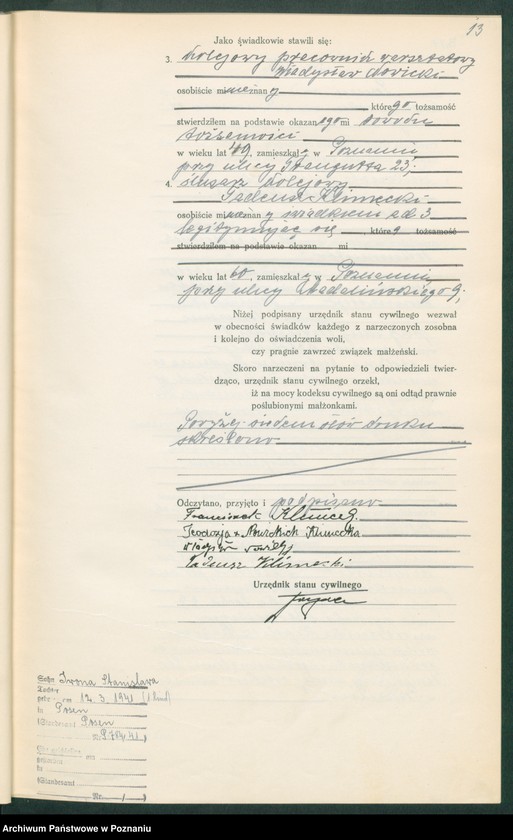 13
Jako świadkowie stawili się:
3. kolejowy pracownik warsztatowy
Władysław Nowicki
osobiście mi nieznany
, którego tożsamość
stwierdziłem na podstawie okazanego mi dowodu
tożsamości
w wieku lat 49, zamieszkały w Poznaniu
przy ulicy 23;
4. ślusarz kolejowy
Tadeusz Klimecki
osobiście mi nieznany świadkiem ad 3
legitymując się , które tożsamość
stwierdziłem na podstawie okazan mi
w wieku lat 60, zamieszkały w Poznaniu,
przy ulicy Madalińskiego 9;
Niżej podpisany urzędnik stanu cywilnego wezwał
w obecności świadków każdego z narzeczonych zosobna
i kolejno do oświadczenia woli,
czy pragnie zawrzeć związek małżeński.
Skoro narzeczeni na pytanie to odpowiedzieli twier-
dząco, urzędnik stanu cywilnego orzekł,
iż na mocy kodeksu cywilnego są oni odtąd prawnie
poślubionymi małżonkami.
Powyżej siedem słów druku
skreślono
Odczytano, przyjęto i podpisano
Franciszek Klimecki
Teodozja z Nowickich Klimecka
Władysław Nowicki
Tadeusz Klimecki
Urzędnik stanu cywilnego
Sohn Iwona Stanisława
Tochter
geb. am 12. 3. 1941
in Posen
(Standesamt Posen
Nr. 784/41)
am
in
(Standesamt
Nr. / )
Archiwum Państwowe w Poznaniu